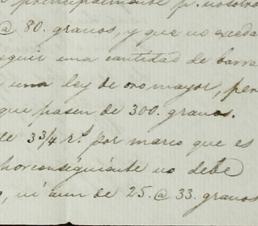 principalmente p. nosotro
@ 80. granos, y que no queda
eguir una cantidad de barra
una ley de oro mayor, per
que pasen de 300. granos.
de 3 3/4 r.s por marco que es
porconsiguiente no debe
, ni aun de 25. @ 33. granos